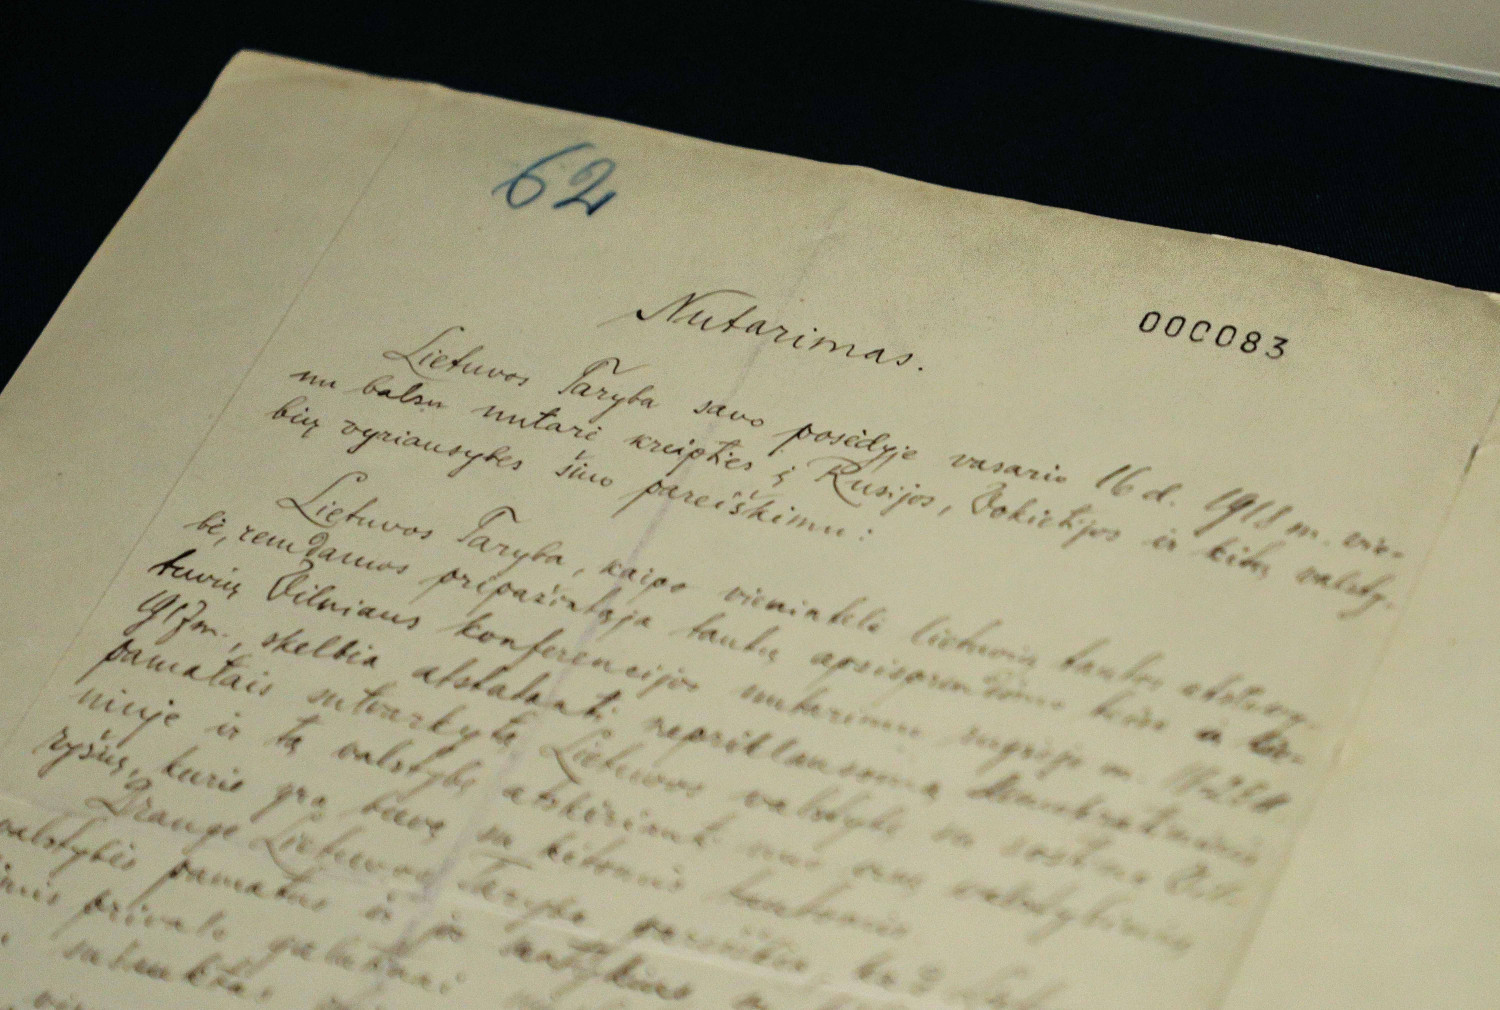 62
000083
Nutarimas.
Lietuvos Taryba savo posėdyje vasario 16 d. 1918 m. vie-
nu balsu nutarė kreipties į Rusijos, Vokietijos ir kitų valsty-
bių vyriausybes šiuo pareiškimu:
Lietuvos Taryba, kaipo vienintelė lietuvių tautos atstovy-
bė, remdamos pripažintąja tautų apsisprendimo teise ir lie-
tuvių Vilniaus konferencijos nutarimu rugsėjo m. 18-23 d.
1917 m., skelbia atstatanti nepriklausomą demokratiniais
pamatais sutvarkytą Lietuvos valstybę su sostine Vil-
niuje ir tą valstybę atskirianti nuo visų valstybinių
ryšių, kurie yra buvę su kitomis tautomis.
Drauge Lietuvos Taryba pareiškia, kad
valstybės pamatus ir jos santykius
privalo galutinai
sušauktas